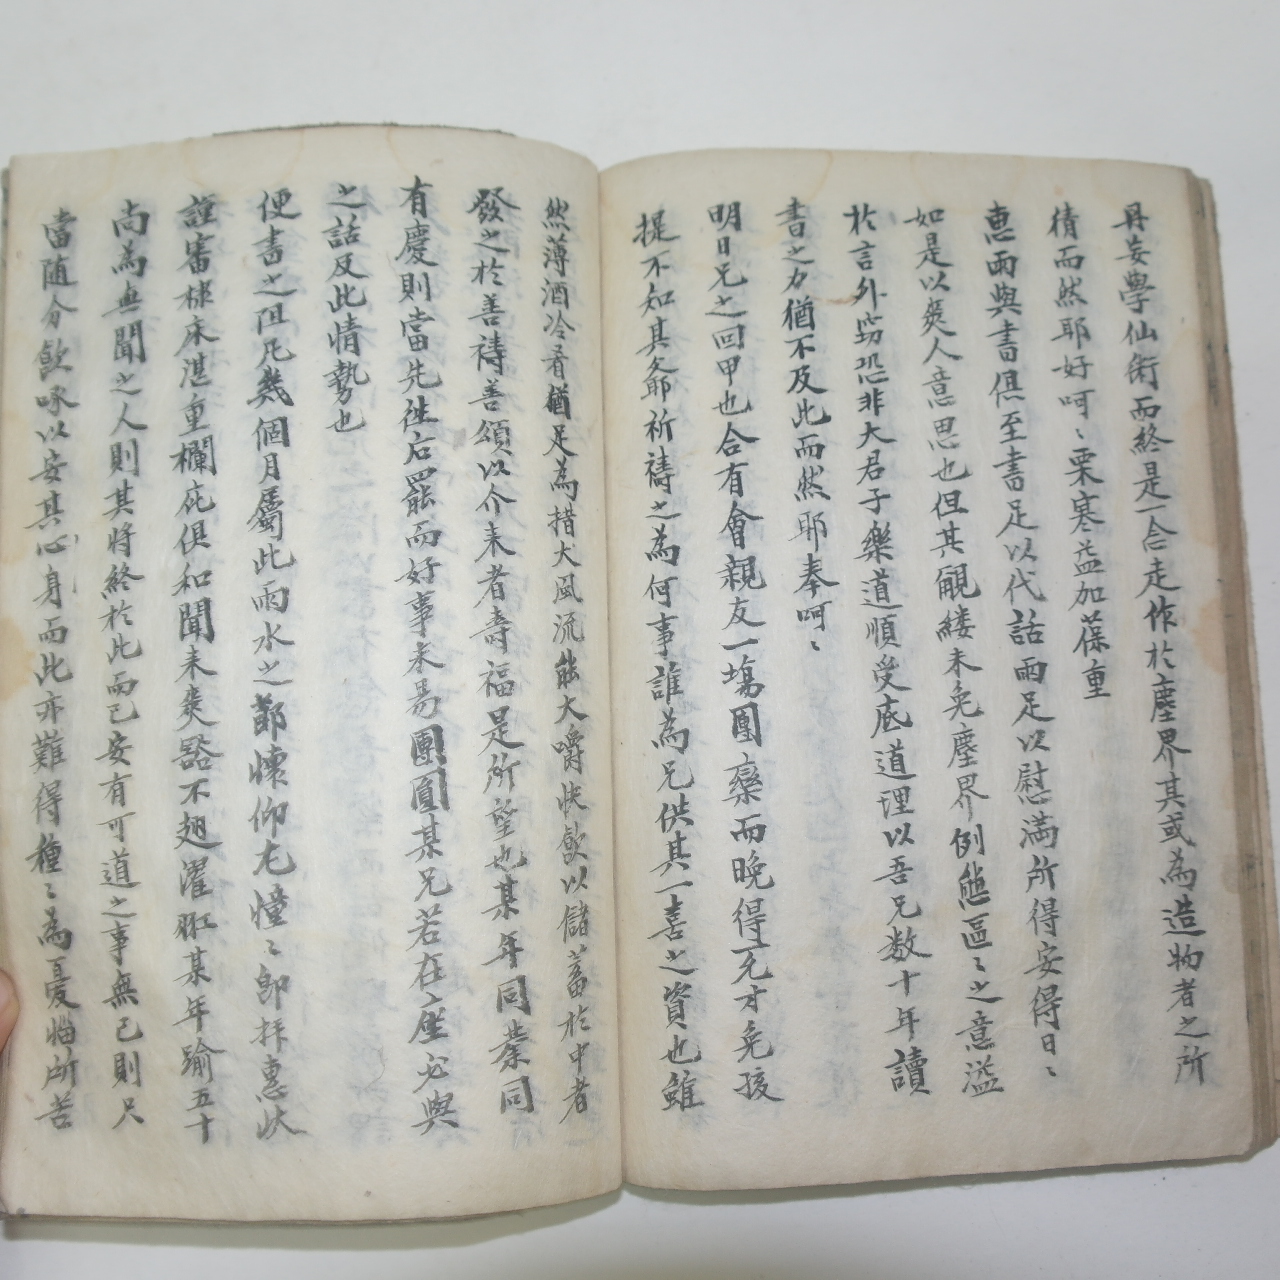 丹妄學仙術而終是一合走作於塵界其或為造物者之所
猜而然耶好呵〻栗寒益加葆重
惠雨與書俱至書足以代話雨足以慰滿所得安得日〻
如是以爽人意思也但其覼縷未免塵界例態區〻之意溢
於言外竊恐非大君子樂道順受底道理以吾兄数十年讀
書之力猶不及此而然耶奉呵〻
明日兄之回甲也合有會親友一塲團欒而晚得一兒才免孩
提不知其爺祈禱之為何事誰為兄供其一喜之資也雖
然薄酒冷肴猶足為措大風流能大嚼快飲以儲蓄於中者
發之於善禱善頌以介来者壽福是所望也某年同業同
有慶則當先徃后罷而好事未易團圓某兄若在座必與
之話及此情勢也
便書之阻凡幾個月屬此雨水之節懷仰尤憧〻即拜惠狀
謹審棣床湛重欄庇俱和聞来爽豁不翅濯肱某年踰五十
尚為無聞之人則其將終於此而已安有可道之事無已則只
當随分飲啄以安其心身而此亦難得種〻為憂惱所苦